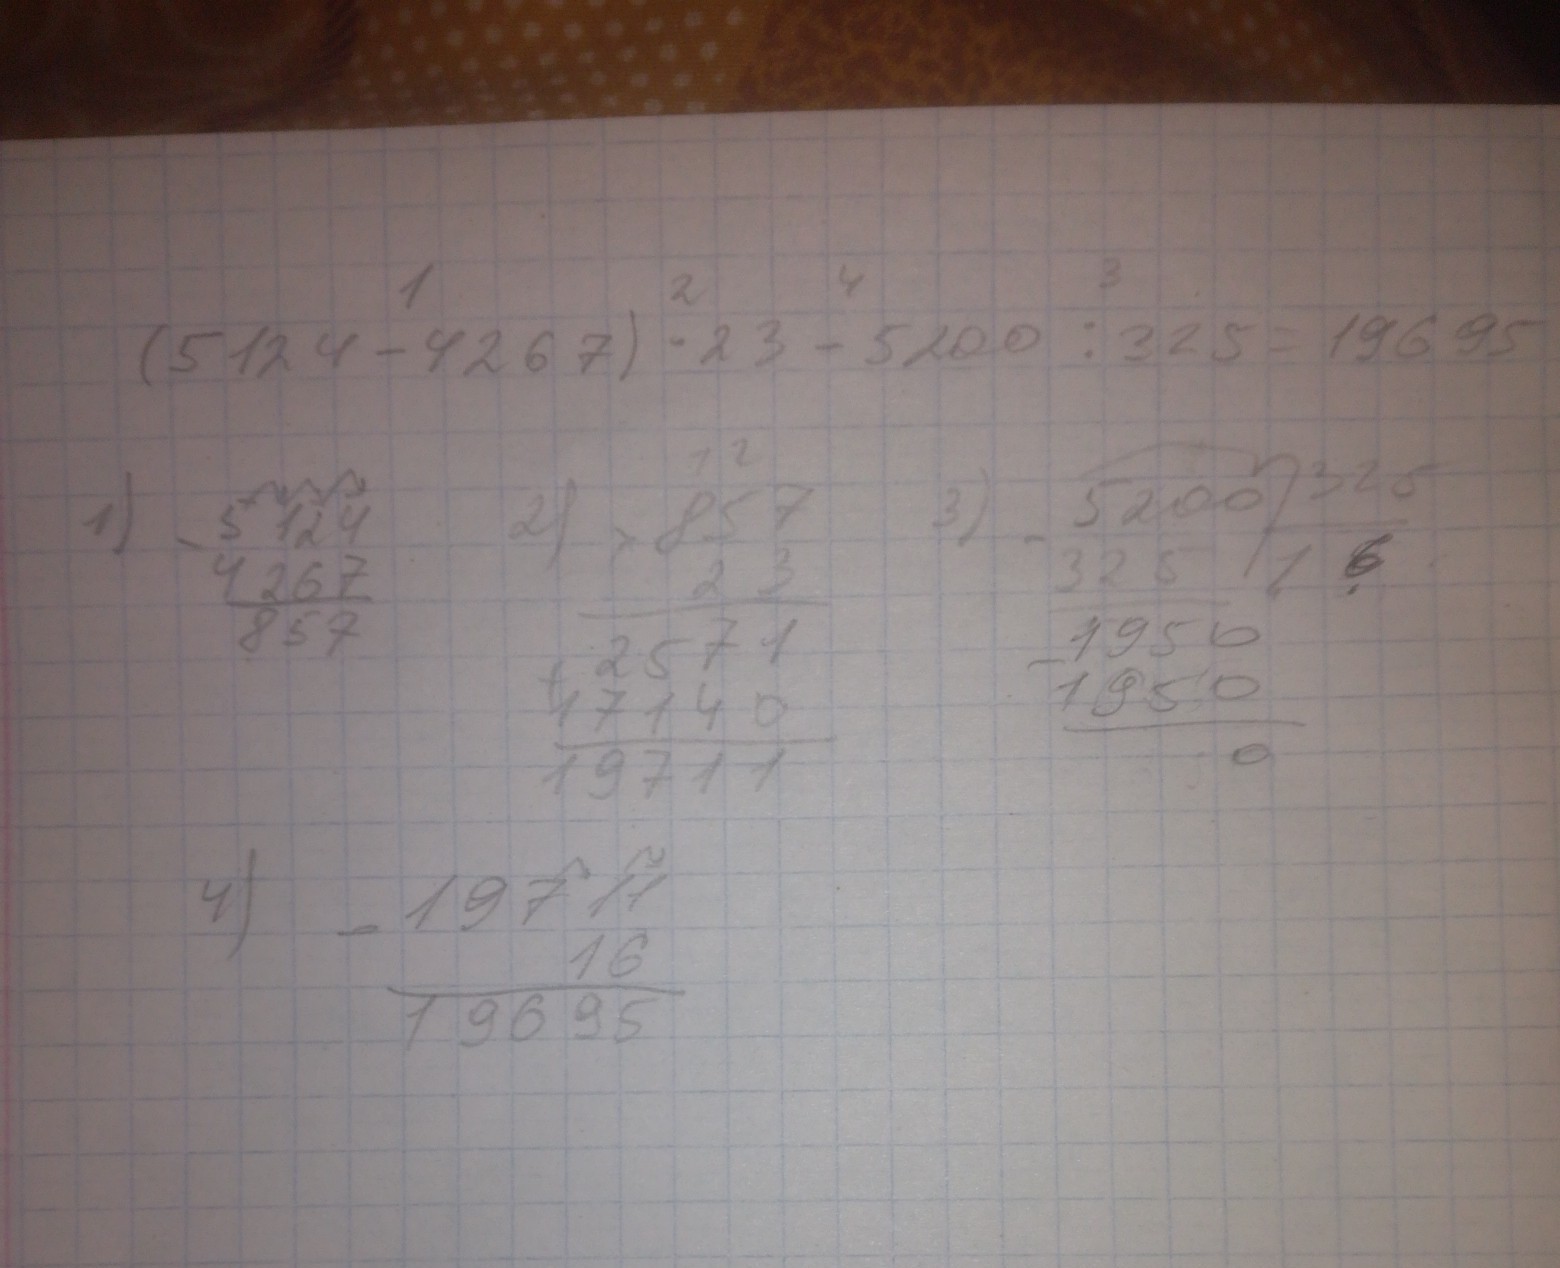 1 2 4 3
(5124-4267)·23-5200:325=19695
1) - 5124
4267
857
2) × 12
857
23
+ 2571
17140
19711
3) - 5200 325
325 16
- 1950
1950
0
4) - 19711
16
19695